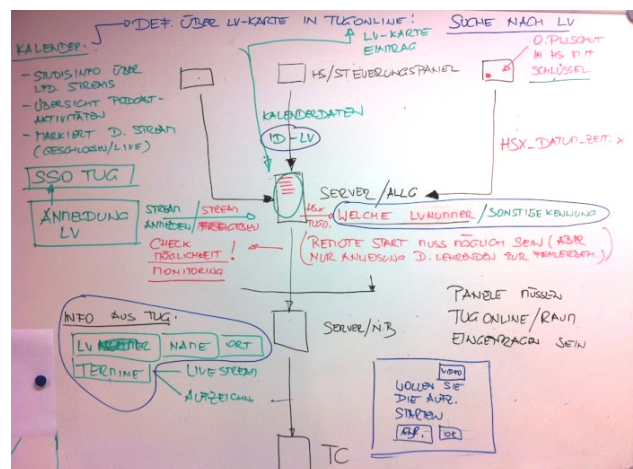 DEF. ÜBER LV-KARTE IN TUGONLINE!
SUCHE NACH LV
KALENDER:
LV-KARTE
EINTRAG
- STUDISINFO ÜBER
LFD. STREAMS
- ÜBERSICHT PODCAST-
AKTIVITÄTEN
- MARKIERT D. STREAM
(GESCHLOSSEN/LIVE)
HS/STEUERUNGSPANEL
IM HS MIT
SCHLÜSSEL
KALENDERDATEN
ID-LV
HSX_DATUM_ZEIT.X
SSO TUG
ANMELDUNG
LV
SERVER/ALLG
STREAM
ANMELDEN/
STREAM
FREIGEBEN
HSX
TUGO.
WELCHE LVNUMMER/SONSTIGE KENNUNG
CHECK
MÖGLICHKEIT!
MONITORING
(REMOTE START MUSS MÖGLICH SEIN (ABER
NUR ANWEISUNG D. LEHRENDEN ZUR FEHLERBEH.)
INFO AUS TUG.
LV NUMMER NAME ORT
TERMINE
LIVESTREAM
AUFZEICHN.
SERVER/N.B
PANELE MÜSSEN
TUGONLINE/RAUM
EINGETRAGEN SEIN
VIDEO
WOLLEN SIE
DIE AUFZ.
STARTEN
ABBR. OK
TC